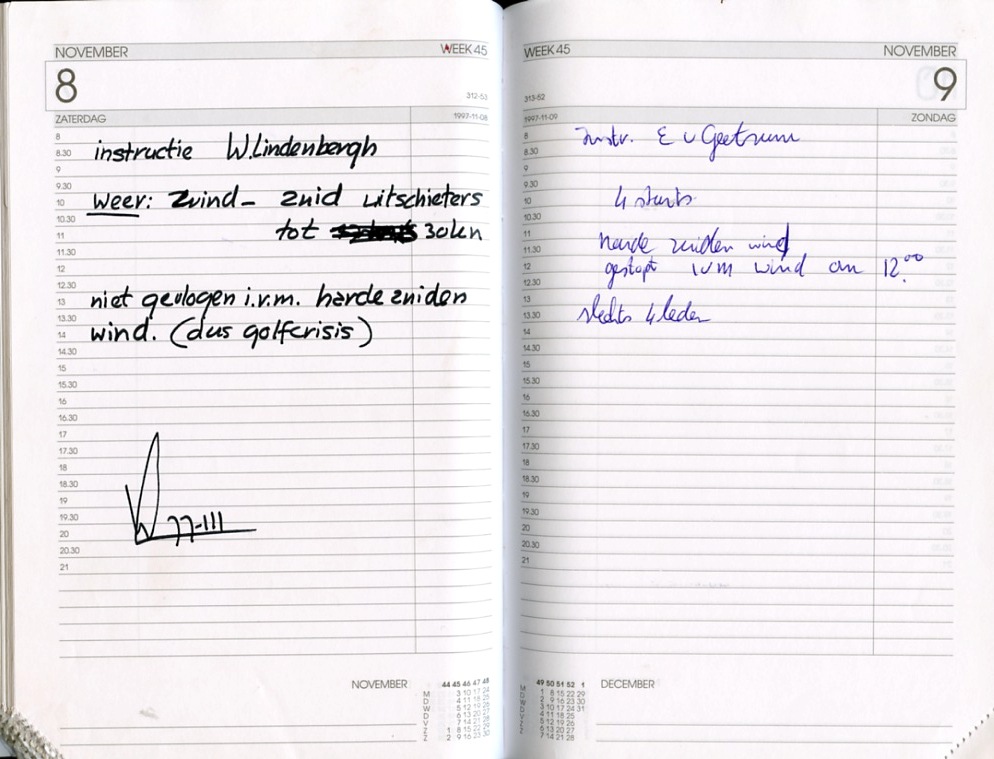 NOVEMBER WEEK 45
8
312-53
ZATERDAG 1997-11-08
8
8.30 instructie W. Lindenbergh
9
9.30
10 weer: Zwind - zuid uitschieters
10.30
11 tot 30kn
11.30
12
12.30
13 niet gevlogen i.v.m. harde zuiden
13.30
14 wind. (dus golfcrisis)
14.30
15
15.30
16
16.30
17
17.30
18
18.30
19
19.30
20
20.30
21
NOVEMBER 44 45 46 47 48
M 3 10 17 24
D 4 11 18 25
W 5 12 19 26
D 6 13 20 27
V 7 14 21 28
Z 1 8 15 22 29
Z 2 9 16 23 30
WEEK 45 NOVEMBER
9
313-52
1997-11-09 ZONDAG
8 Instr. E v Geetrum
8.30
9
9.30
10 4 starts
10.30
11 harde zuiden wind
11.30
12 gestopt ivm wind om 12.00
12.30
13 slechts 4 leden
13.30
14
14.30
15
15.30
16
16.30
17
17.30
18
18.30
19
19.30
20
20.30
21
49 50 51 52 1 DECEMBER
M 1 8 15 22 29
D 2 9 16 23 30
W 3 10 17 24 31
D 4 11 18 25
V 5 12 19 26
Z 6 13 20 27
Z 7 14 21 28